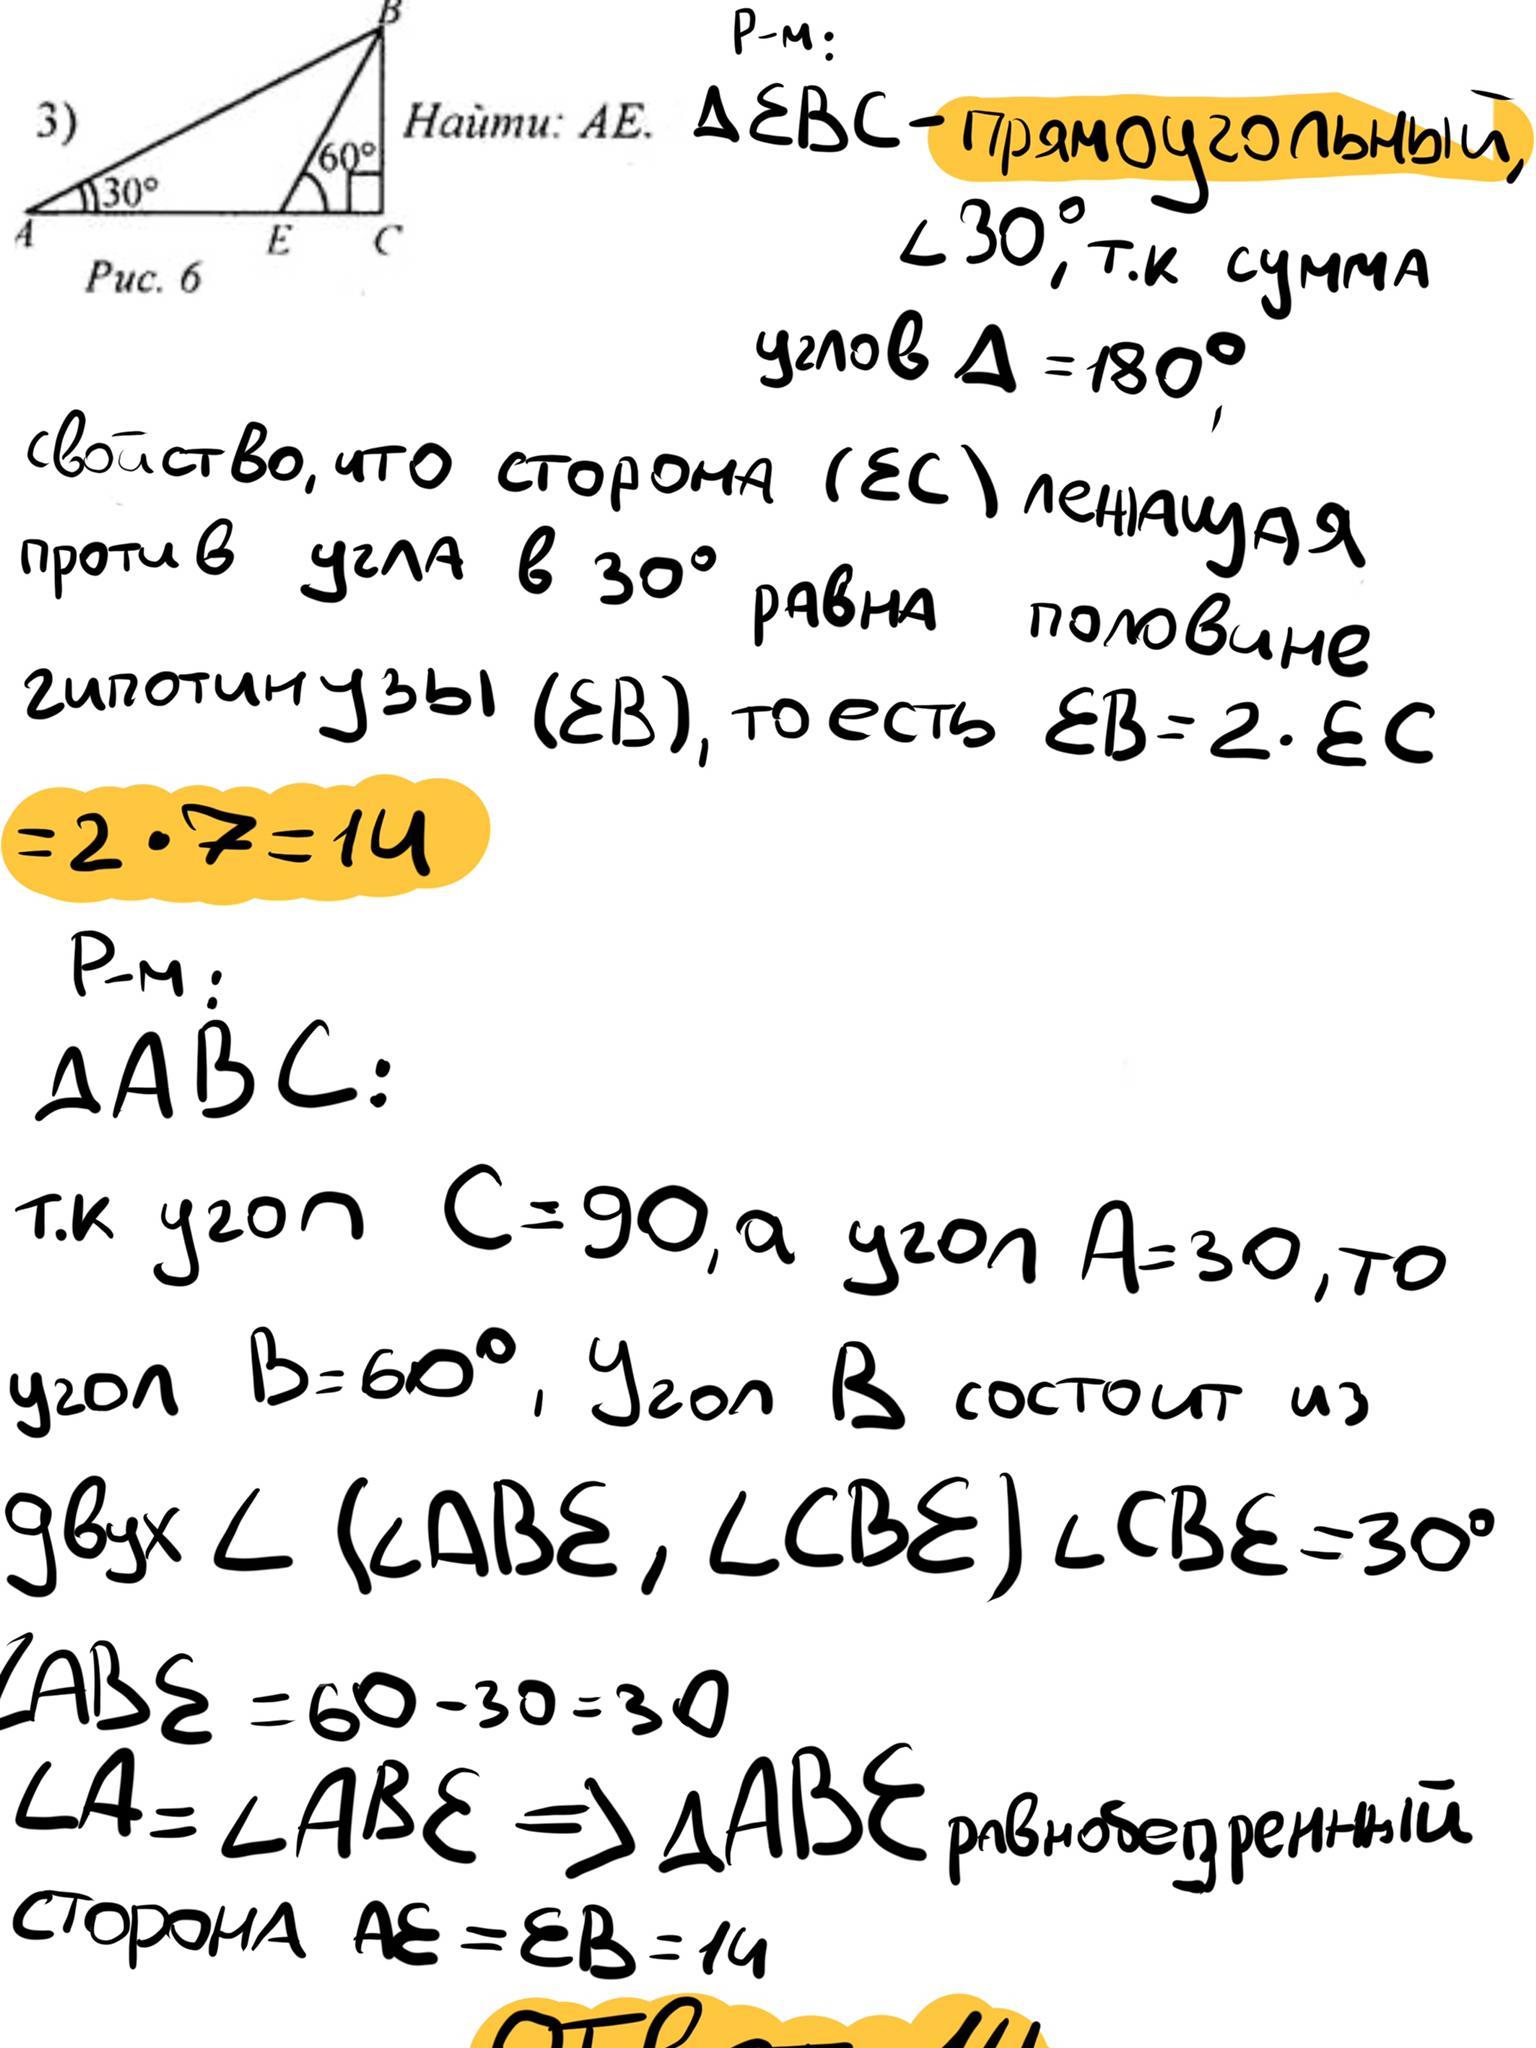 B
Р-м:
3)
Найти: AE.
ΔEBC - прямоугольный,
60°
30°
A
E
C
Рис. 6
∠30°, т.к сумма
углов Δ = 180°,
свойство, что сторона (EC) лежащая
против угла в 30° равна половине
гипотинузы (EB), то есть EB = 2 · EC
= 2 · 7 = 14
Р-м:
ΔABC:
т.к угол C = 90, а угол A = 30, то
угол B = 60°, Угол B состоит из
двух ∠ (∠ABE, ∠CBE) ∠CBE = 30°
∠ABE = 60 - 30 = 30
∠A = ∠ABE => ΔABE равнобедренный
сторона AE = EB = 14
Ответ 14